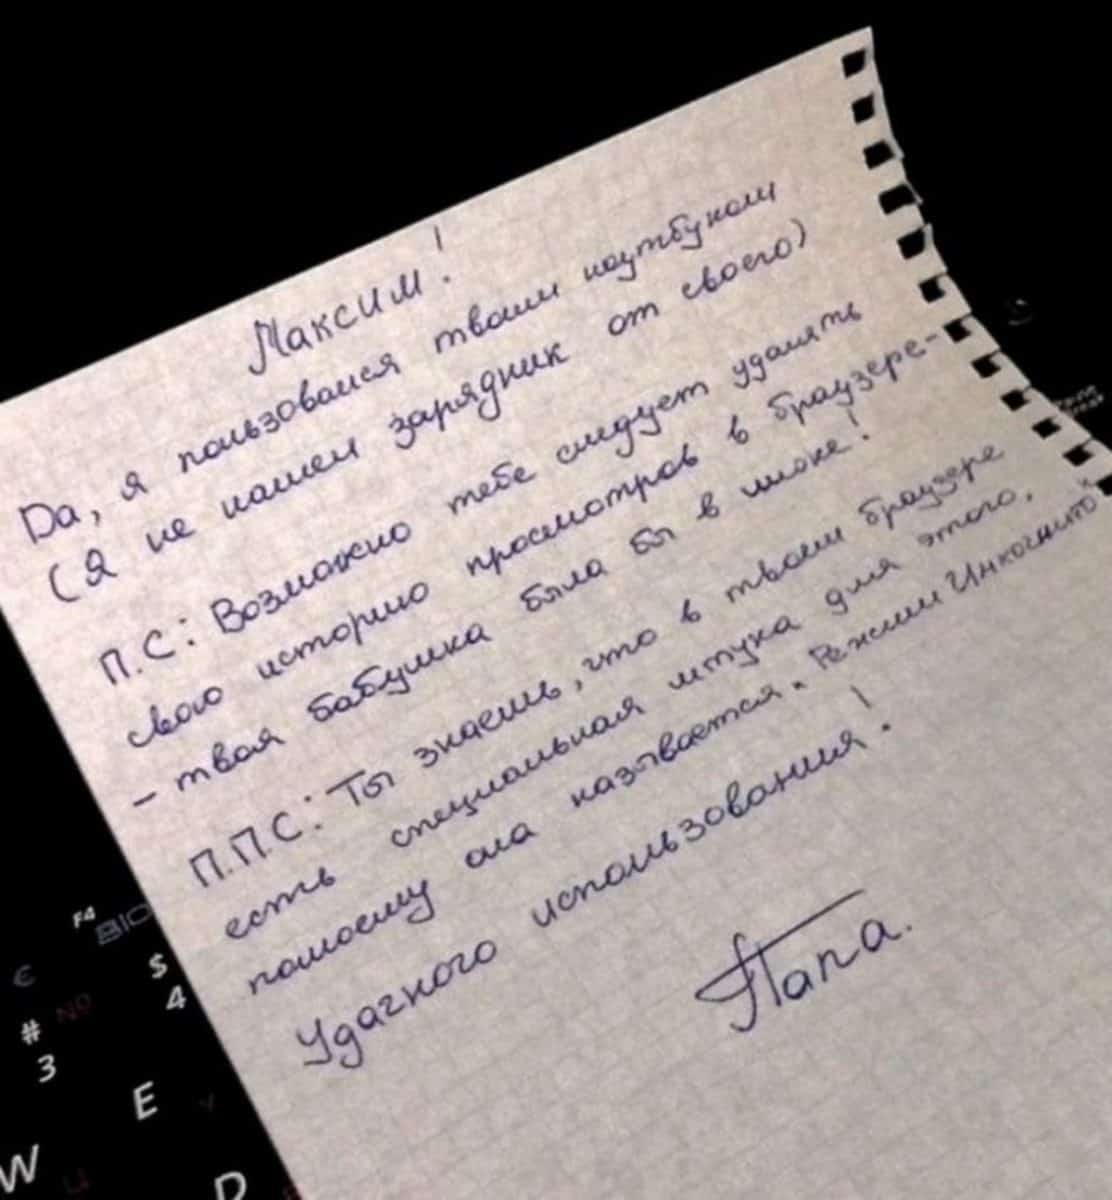 Максим!
Да, я пользовался твоим ноутбуком
(Я не нашел зарядник от своего)
П.С: Возможно тебе следует удалять
свою историю просмотров в браузере-
- твоя бабушка была бы в шоке!
П.П.С: Ты знаешь, что в твоем браузере
есть специальная штука для этого,
помоему она называется "Режим Инкогнито"
Удачного использования!
Папа.
F4
€
$
4
#
3
E
W
D